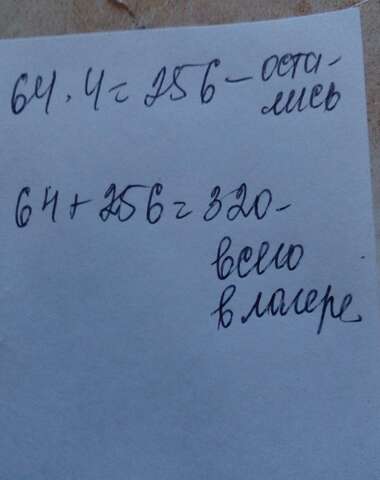 64 · 4 = 256 – оста-
лись
64 + 256 = 320 –
всего
в лагере